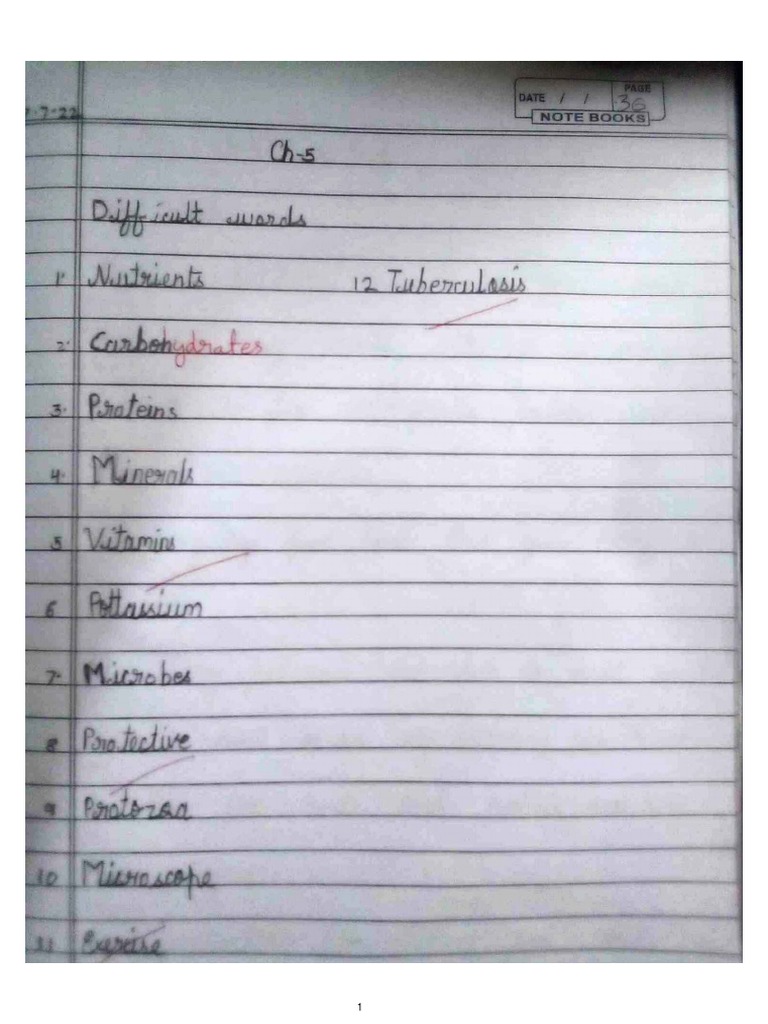 PAGE
DATE / / 36
NOTE BOOKS
-7-22
Ch-5
Difficult words
1. Nutrients
12 Tuberculosis
2. Carbohydrates
3. Proteins
4. Minerals
5 Vitamins
6 Pottassium
7. Microbes
8 Protective
9 Protozoa
10 Microscope
11 Exercise
1